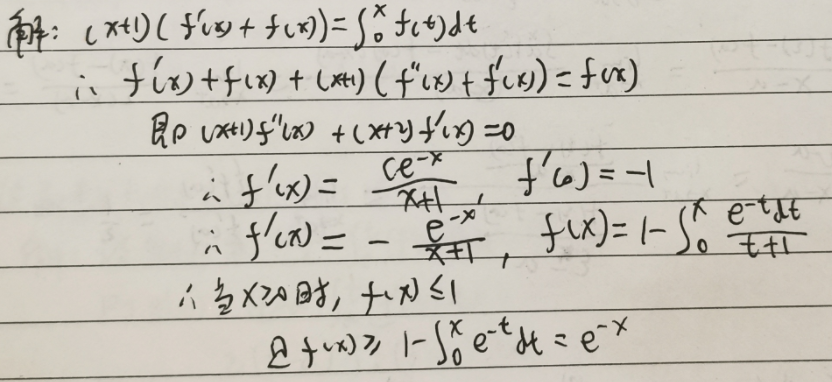 解: (x+1)(f'(x)+f(x))=∫₀ˣ f(t)dt
∴ f'(x)+f(x)+(x+1)(f''(x)+f'(x))=f(x)
即 (x+1)f''(x)+(x+2)f'(x)=0
∴ f'(x)= ce^{-x}/(x+1), f'(0)=-1
∴ f'(x)= - e^{-x}/(x+1), f(x)=1-∫₀ˣ e^{-t}dt/(t+1)
∴ 当x≥0时, f(x)≤1
且 f(x)≥ 1-∫₀ˣ e^{-t}dt = e^{-x}